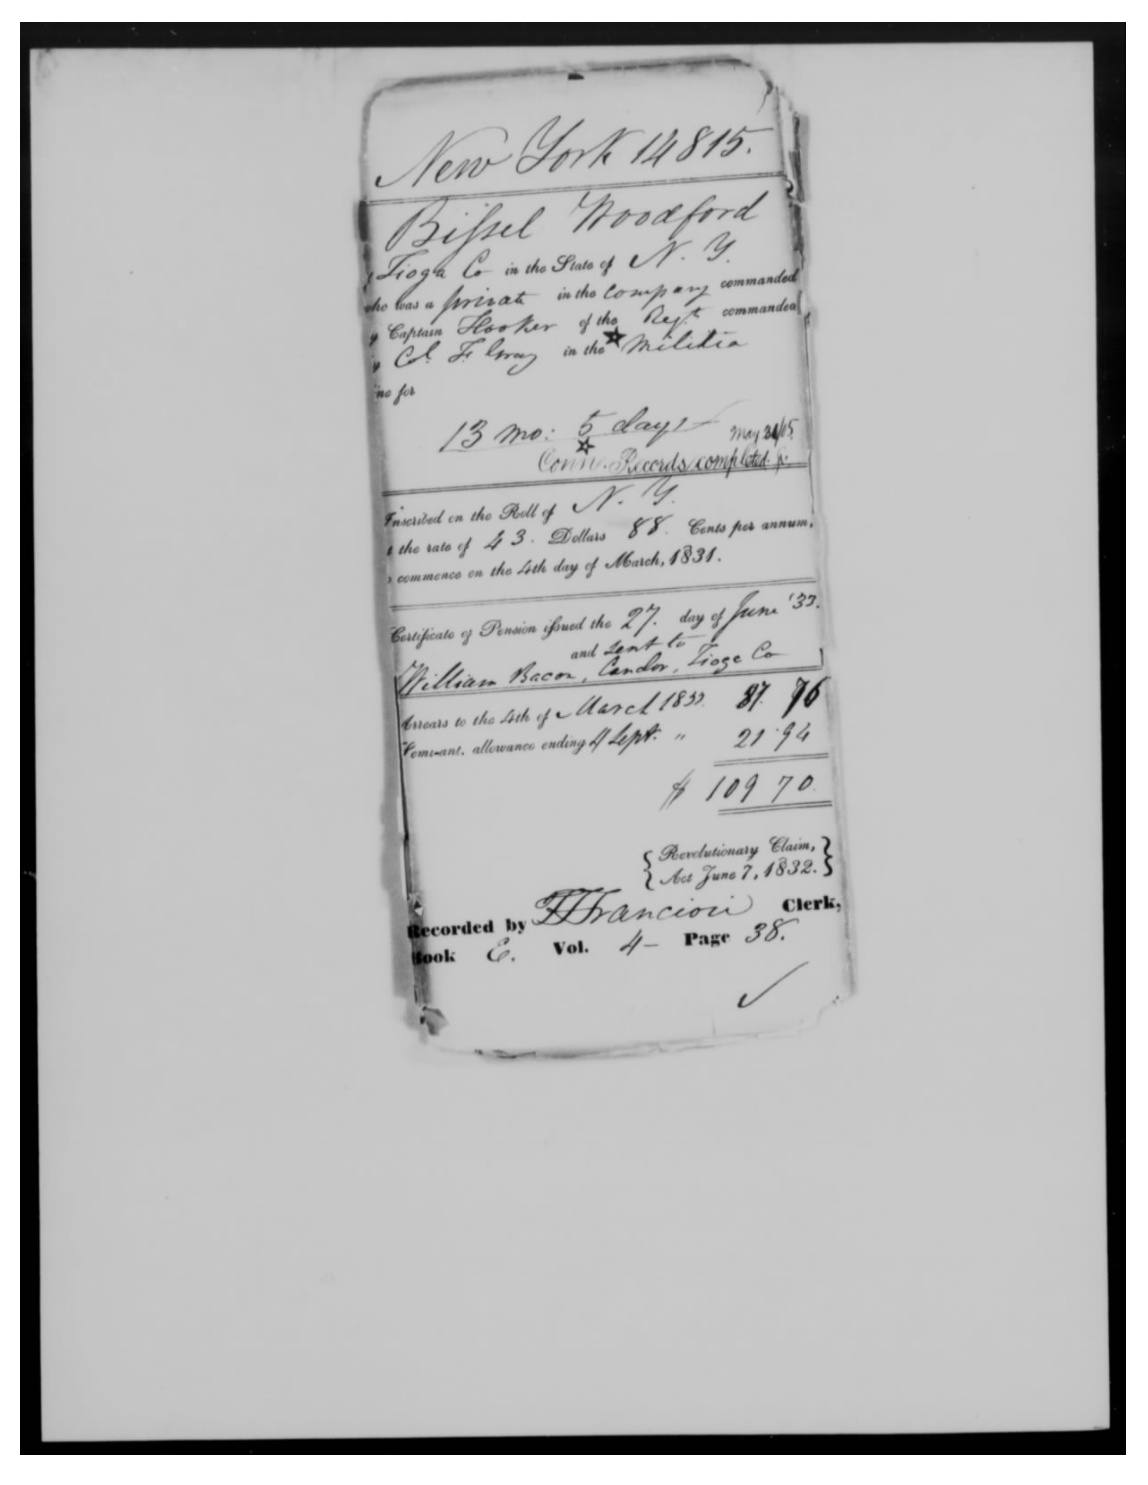 New York 14815.
Bissel Woodford
Tioga Co in the State of N. Y.
who was a private in the company commanded
Captain Hooker of the Regt commanded
Col. in the Militia
for
13 mo: 5 days
May 21/15
Conn. Records completed.
Inscribed on the Roll of N. Y.
the rate of 43. Dollars 88. Cents per annum,
commence on the 4th day of March, 1831.
Certificate of Pension issued the 27. day of June '33.
and sent to
William Bacon, Candor, Tioga Co
Arrears to the 4th of March 1833. 87. 76
Semi-ant. allowance ending 4 Sept. " 21.94
$ 109 70.
Revolutionary Claim,
Act June 7, 1832.
Recorded by Clerk,
Book E. Vol. 4 Page 38.